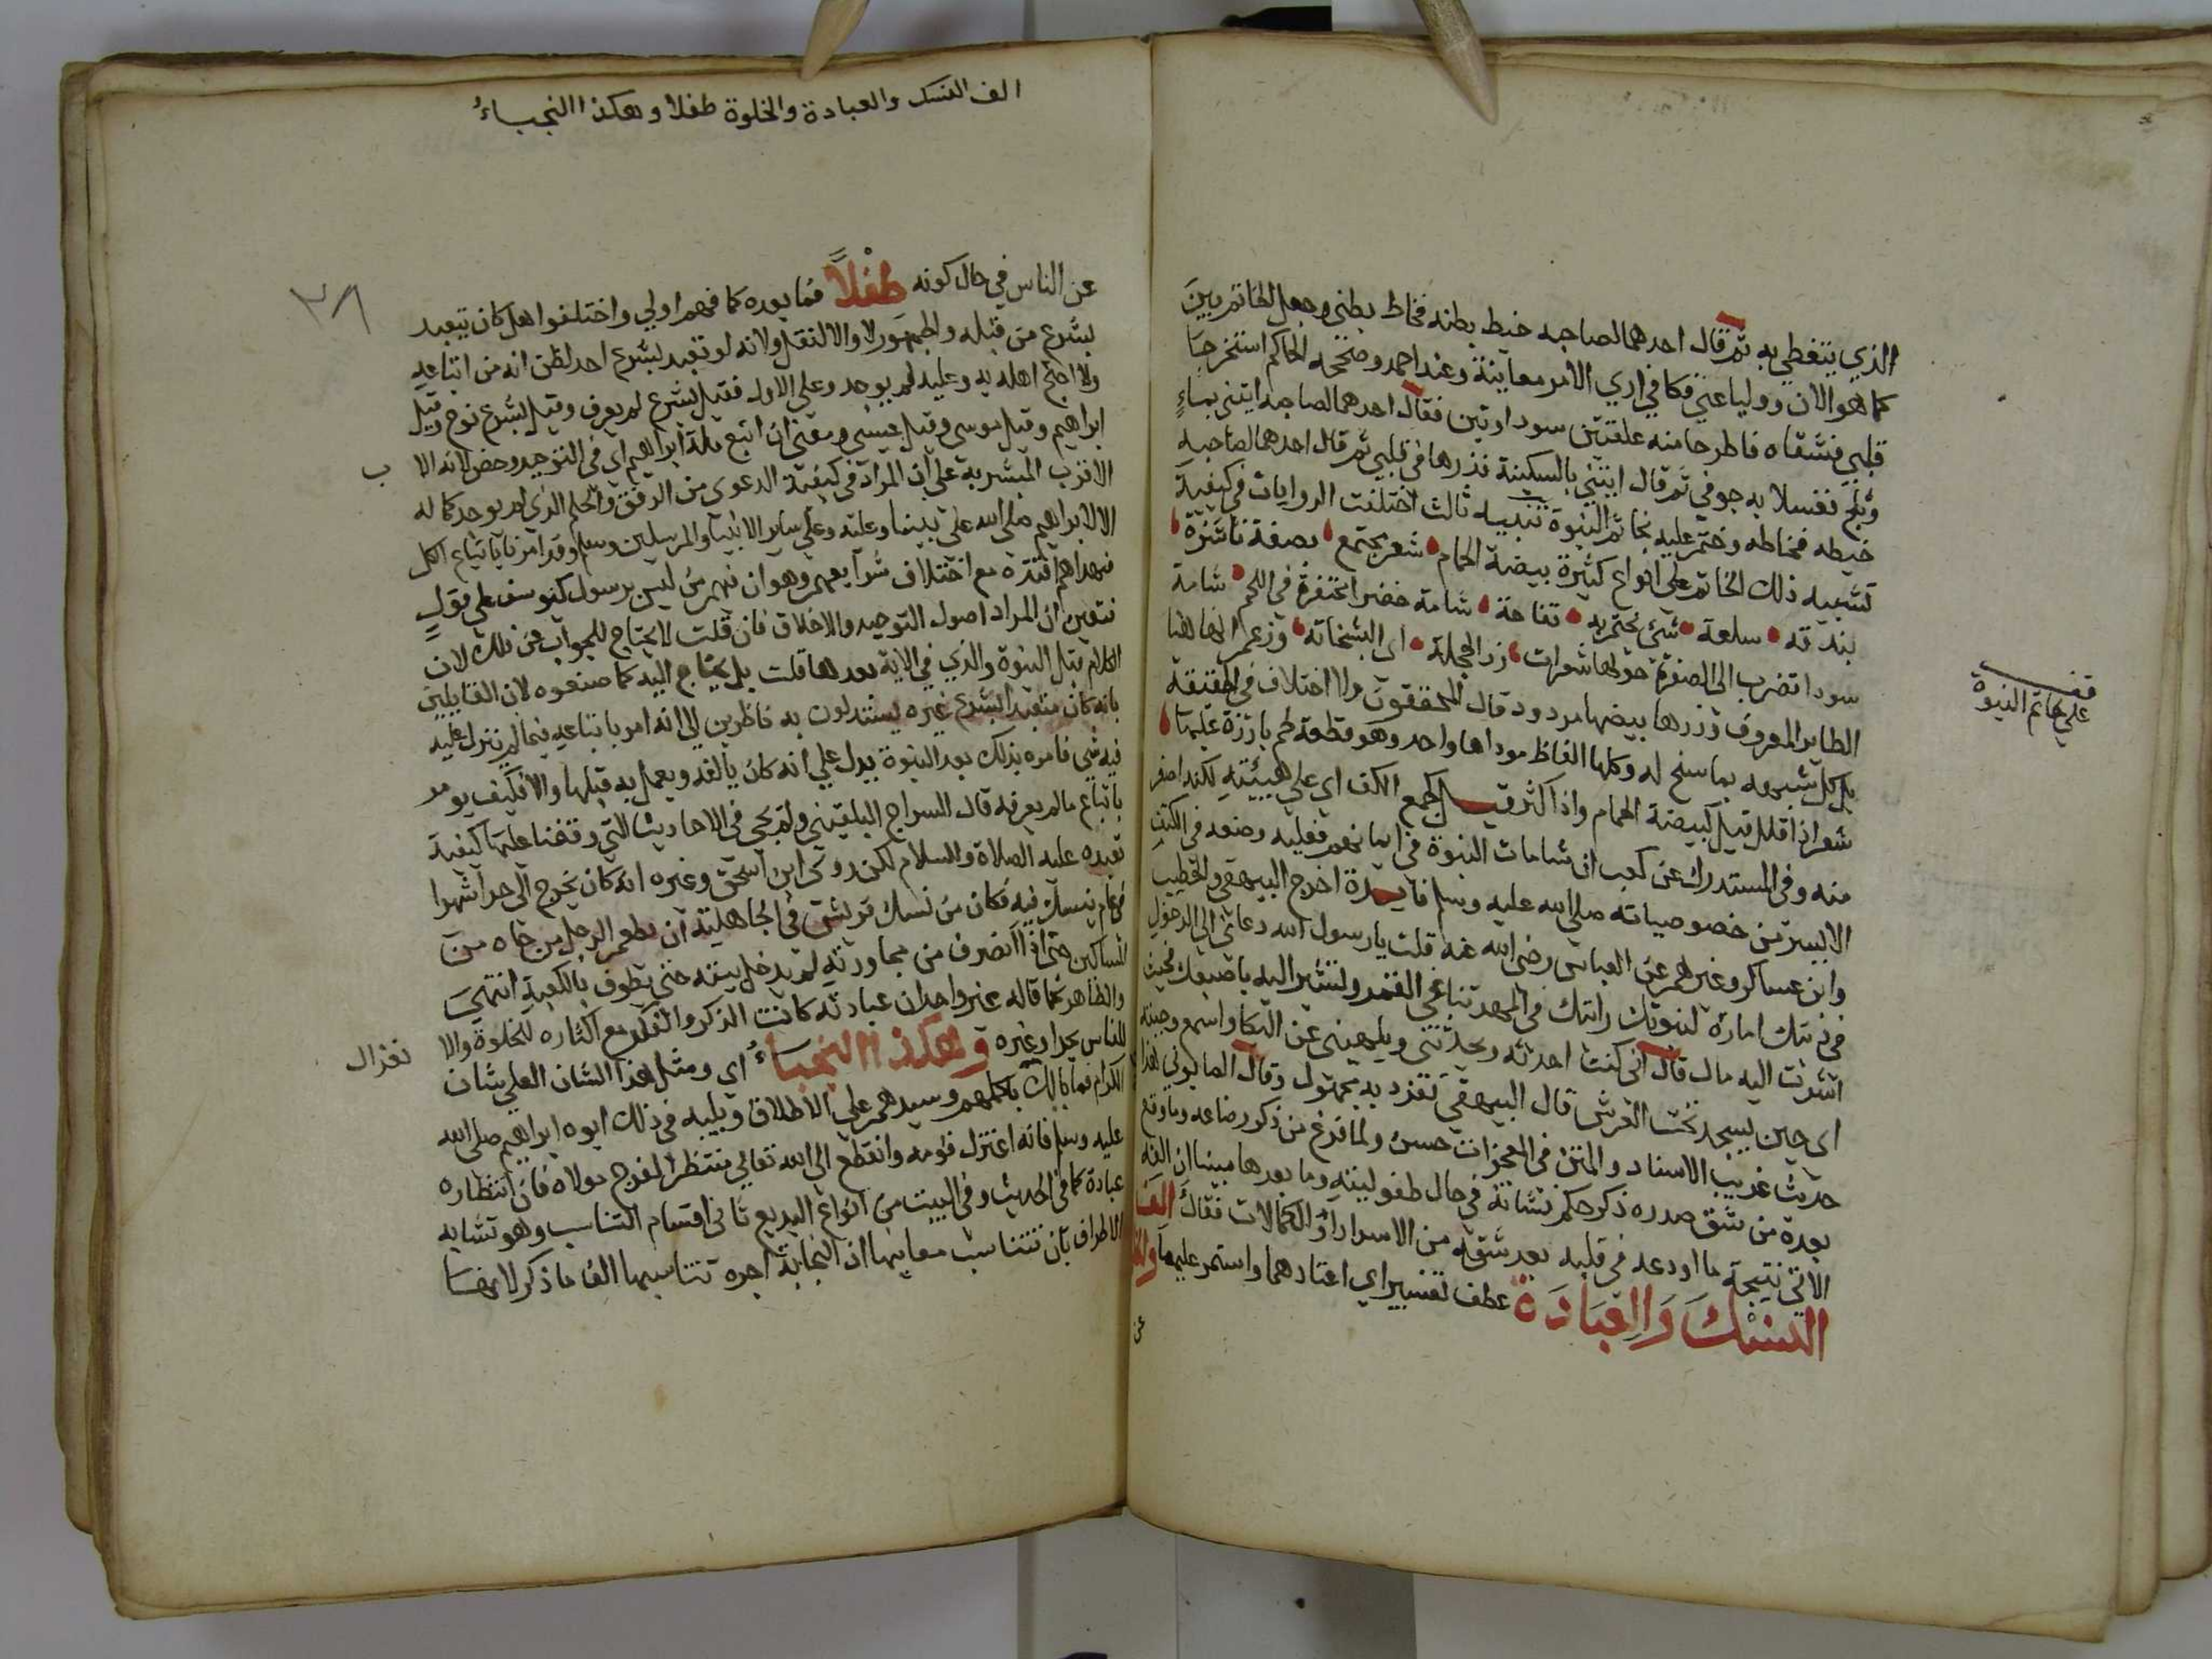 الذي يتغطي به ثم قال احدهما لصاحبه خيط بطنه فخاط بطني وجعل الخاتم بين
كما هو الان ووليا عني فكاني اري الامر معاينة وعند احمد وصححه الحاكم استخرجا
قلبي فشقاه فاطرحا منه علقتين سوداوتين فقال احدهما لصاحبه ايتني بماء
وثلج فغسلا به جوفي ثم قال ايتني بالسكينة فذرها في قلبي ثم قال احدهما لصاحبه
خيطه فخاطه وختم عليه بخاتم النبوة تنبيه ثالث اختلفت الروايات في كيفية
تشبيه ذلك الخاتم على انواع كثيرة بيضة الحمام شعر مجتمع بضعة ناشزة
بندقة سلعة شئ يختم به تفاحة شامة خضرا محتفرة في اللحم شامة
سودا تضرب الى الصفرة حولها شعرات زر الحجلة اى البشخانة وزعم انها هنا
الطاير المعروف وزرها بيضها مردود قال المحققون ولا اختلاف في الحقيقة
بل كل شبهه بما سنح له وكلها الفاظ موداها واحد وهو قطعة لحم بارزة عليها
شعر اذا قلل قيل كبيضة الحمام واذا كثر قيل كجمع الكف اي على هيئته لكنه اصغر
منه وفي المستدرك عن كعب ان شامات النبوة في ايمانهم فعليه وضعه في الكتف
الايسر من خصوصياته صلى الله عليه وسلم فايدة اخرج البيهقي والخطيب
وابن عساكر وغيرهم عن العباس رضى الله عنه قلت يارسول الله دعاني الى الدخول
في دينك امارة لنبوتك رايتك في المهد تناغي القمر وتشير اليه باصبعك فحيث
اشرت اليه مال قال اني كنت احدثه ويحدثني ويلهيني عن البكا واسمع وجبته
اى حين يسجد تحت العرش قال البيهقي تفرد به مجهول وقال الصابوني هذا
حديث غريب الاسناد والمتن في المعجزات حسن ولما فرغ من ذكر رضاعه وما وقع
بعده من شق صدره ذكر حكم نشاته في حال طفوليته وما بعدها مبينا ان الفه
الاتي نتيجة ما اودعه في قلبه بعد شقه من الاسرار والكمالات فقال الف
النسك والعبادة عطف تفسير اي اعتادهما واستمر عليهما والخلوة
عن
قف
علي خاتم النبوة
الف النسك والعبادة والخلوة طفلا وهكذا النجباء
عن الناس في حال كونه طفلا فما بعده كما فهم اولي واختلفوا هل كان يتعبد
بشرع من قبله والجمهور لا والا لنقل ولانه لو تعبد بشرع احد لظن انه من اتباعه
ولا احتج اهله به وعليه لم يوجد وعلي الاول فقيل بشرع لم يعرف وقيل بشرع نوح وقيل
ابراهيم وقيل موسي وقيل عيسي ومعني ان اتبع ملة ابراهيم اي في التوحيد وحض لانه الا
الاقرب المبشر به علي ان المراد في كيفية الدعوى من الرفق والحلم الذي لم يوجد كماله
الا لابراهيم صلى الله على نبينا وعليه وعلي ساير الانبيا والمرسلين وسلم وقد امرنا باتباع الكل
فبهداهم اقتده مع اختلاف شرايعهم وهو ان فيهم من ليس برسول كيوسف علي قول
فتعين ان المراد اصول التوحيد والاخلاق فان قلت لا يحتاج للجواب عن ذلك لان
الكلام قبل النبوة والذي في الاية بعدها قلت بل يحتاج اليه كما صنعوه لان القايلين
بانه كان متعبدا بشرع غيره يستدلون به ناظرين الي انه امر باتباعه فيما لم ينزل عليه
فيه شي فامره بذلك بعد النبوة يدل علي انه كان يالفه ويعمل به قبلها والا فكيف يومر
باتباع مالم يعرفه قال السراج البلقيني ولم يجي في الاحاديث التي وقفنا عليها كيفية
تعبده عليه الصلاة والسلام لكن روى ابن اسحق وغيره انه كان يخرج الى حرا شهرا
في عام ينسك فيه فكان من نسك قريش في الجاهلية ان يطعم الرجل من جاه من
المساكين حتى اذا انصرف من مجاورته لم يدخل بيته حتي يطوف بالكعبة انتهي
والظاهر كما قاله غير واحد ان عبادته كانت الذكر والفكر مع اكثاره للخلوة والا
نعزال
للناس بحرا وغيره وهكذا النجباء اي ومثل هذا الشان العلي شان
الكرام فما بالك باكملهم وسيدهم على الاطلاق ويليه في ذلك ابوه ابراهيم صلى الله
عليه وسلم فانه اعتزل قومه وانقطع الى الله تعالي منتظرا لفرج مولاه فان انتظاره
عبادة كما في الحديث وفي البيت من انواع البديع ثاني اقسام التناسب وهو تشابه
الاطراف بان تتناسب معانيها اذ النجابة اجره تتناسبها الف ما ذكر لانها